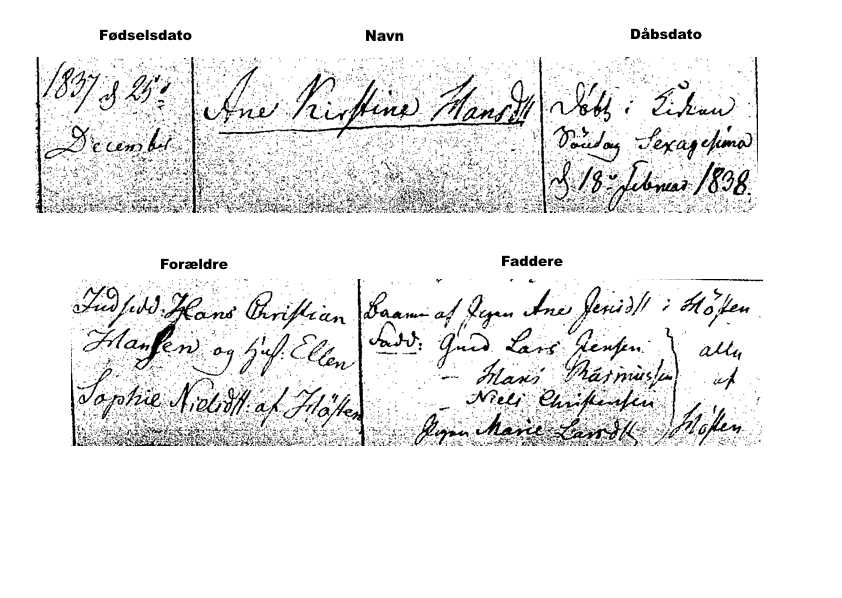 Fødselsdato
Navn
Dåbsdato
1837 d 25de
December
Ane Kirstine Hansdtt
Døbt i Kirken
Søndag Sexagesima
d 18de Februar 1838.
Forældre
Faddere
Indsidd: Hans Christian
Hansen og Hust: Ellen
Sophie Nielsdtt: af Høsten
Baaren af Pigen Ane Jensdtt i Høsten
Fadd: Gmd Lars Jensen
alle
— Hans Rasmussen
af
Niels Christensen
Pigen Marie Larsdtt
Høsten